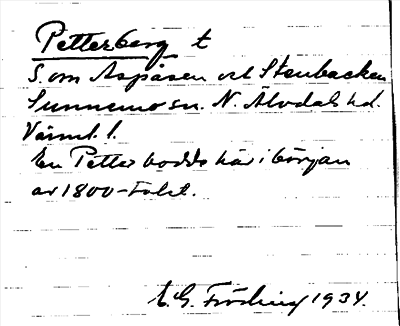 Petterberg t
S. om Aspåsen och Stenbacken
Sunnemo sn. N. Älvdals hd.
Värml. l.
En Petter bodde här i början
av 1800-talet.
E. G. Fröding 1934.